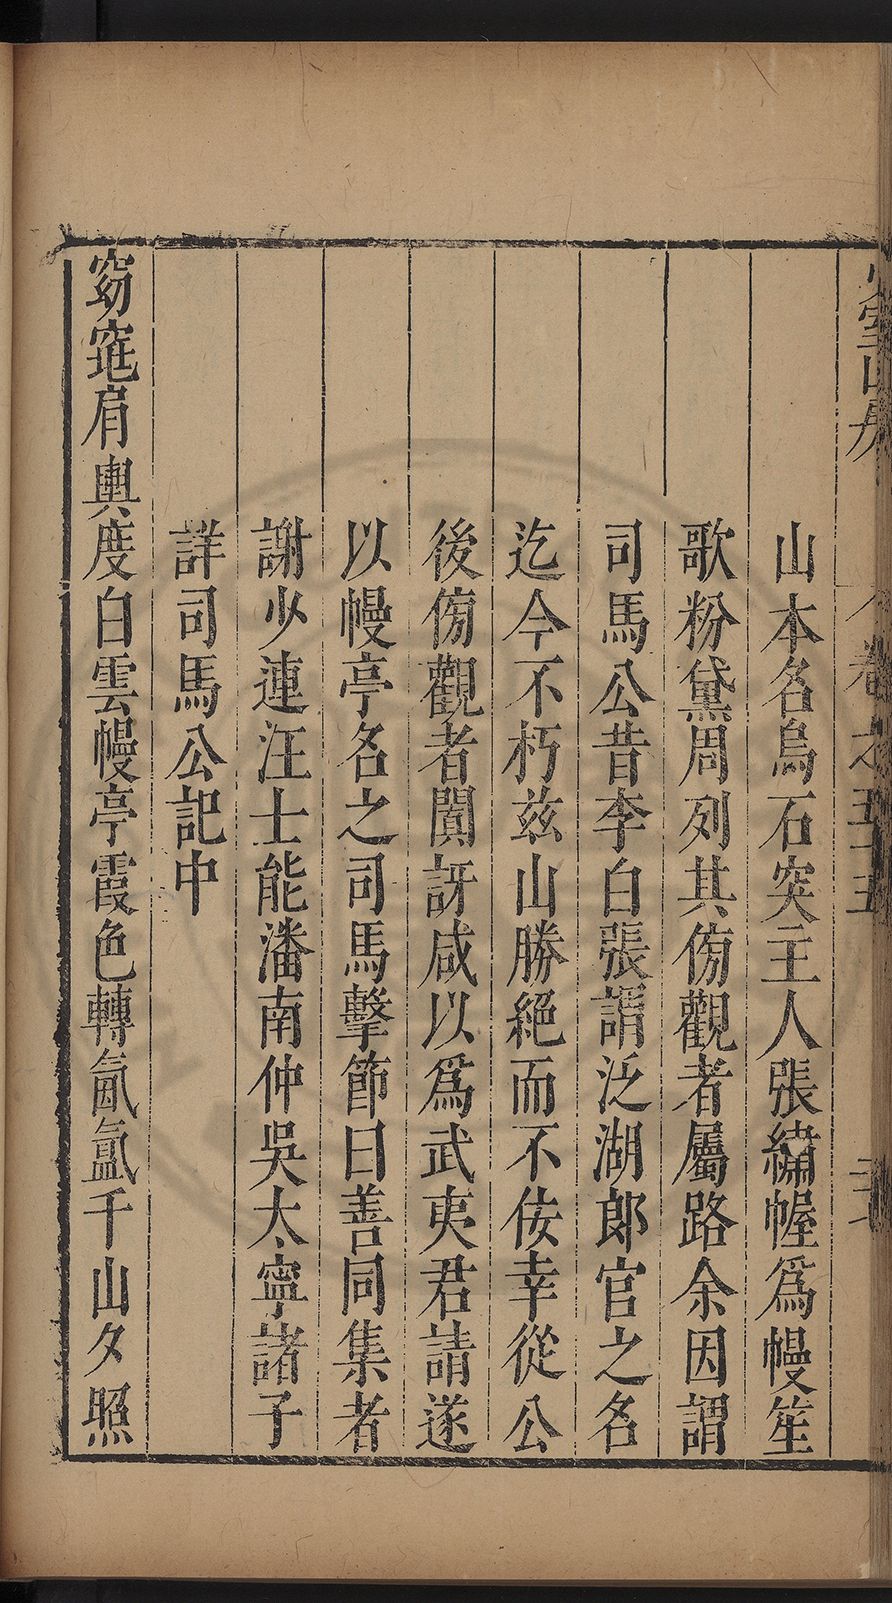 山房
卷之五十五
山本名烏石突主人張繡幄爲幔笙
歌粉黛周列其㑂觀者屬路余因謂
司馬公昔李白張謂泛湖郎官之名
迄今不朽兹山勝絕而不佞幸從公
後㑂觀者闐訝咸以爲武夷君請遂
以幔亭名之司馬擊節曰善同集者
謝少連汪士能潘南仲吳太寧諸子
詳司馬公記中
窈窕肩輿度白雲幔亭霞色轉氤氳千山夕照